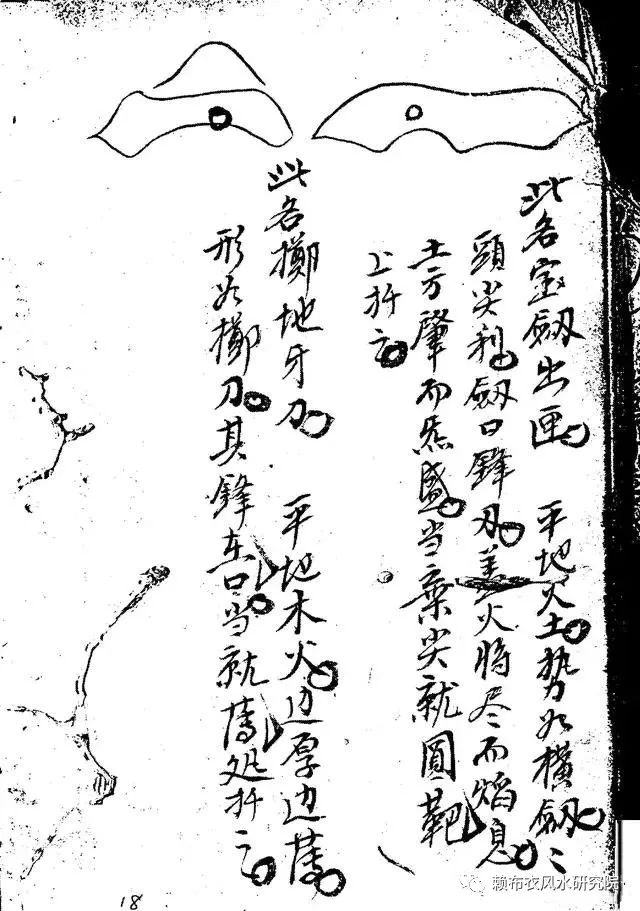 此名宝劔出匣 平地火土势如橫劔〻
頭尖利劔口鋒刃盖火將尽而焰息
土方肇而炁盛当棄尖就圓靶
上扦之
此名擲地牙刀 平地木火边厚边薄
形如擲刀其鋒在口当就薄処扦之
18
赖布衣风水研究院